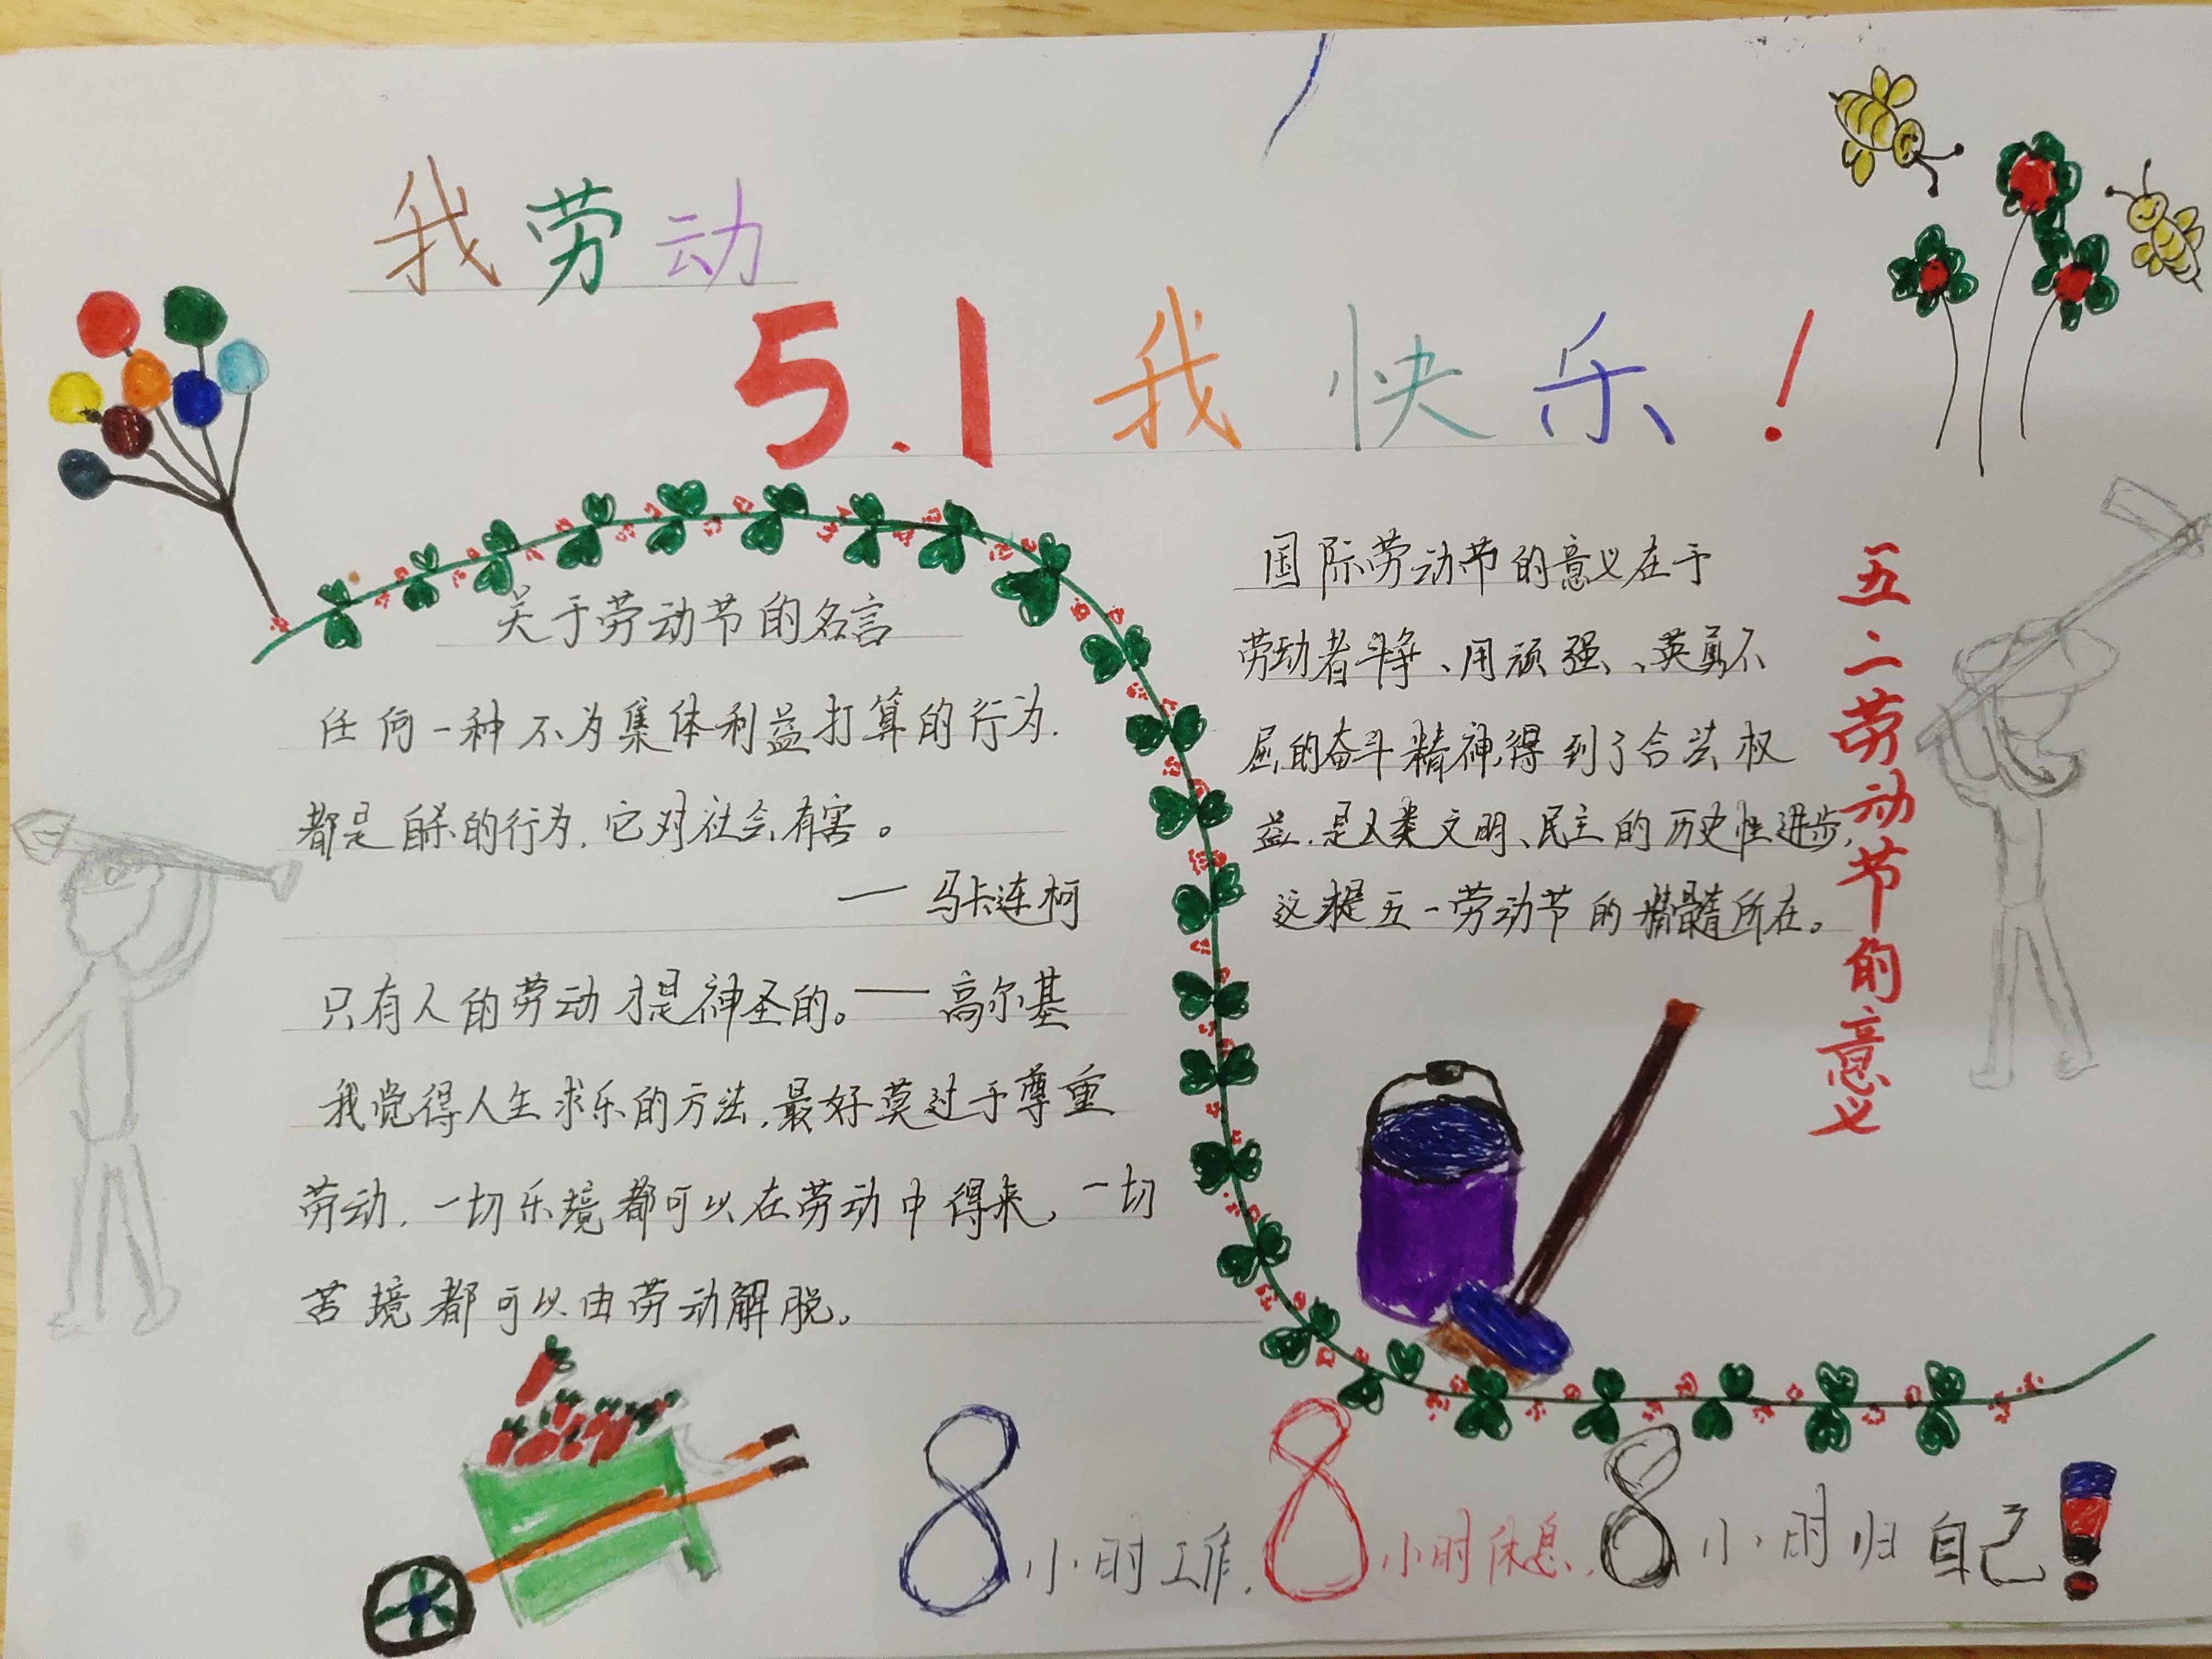 我劳动
5.1 我快乐！
关于劳动节的名言
任何一种不为集体利益打算的行为.
都是自杀的行为,它对社会有害。
—马卡连柯
只有人的劳动才是神圣的。——高尔基
我觉得人生求乐的方法,最好莫过于尊重
劳动,一切乐境都可以在劳动中得来,一切
苦境都可以由劳动解脱。
国际劳动节的意义在于
劳动者斗争、用顽强、英勇不
屈的奋斗精神,得到了合法权
益,是人类文明、民主的历史性进步,
这才是五一劳动节的精髓所在。
五·一劳动节的意义
8小时工作,8小时休息,8小时归自己!